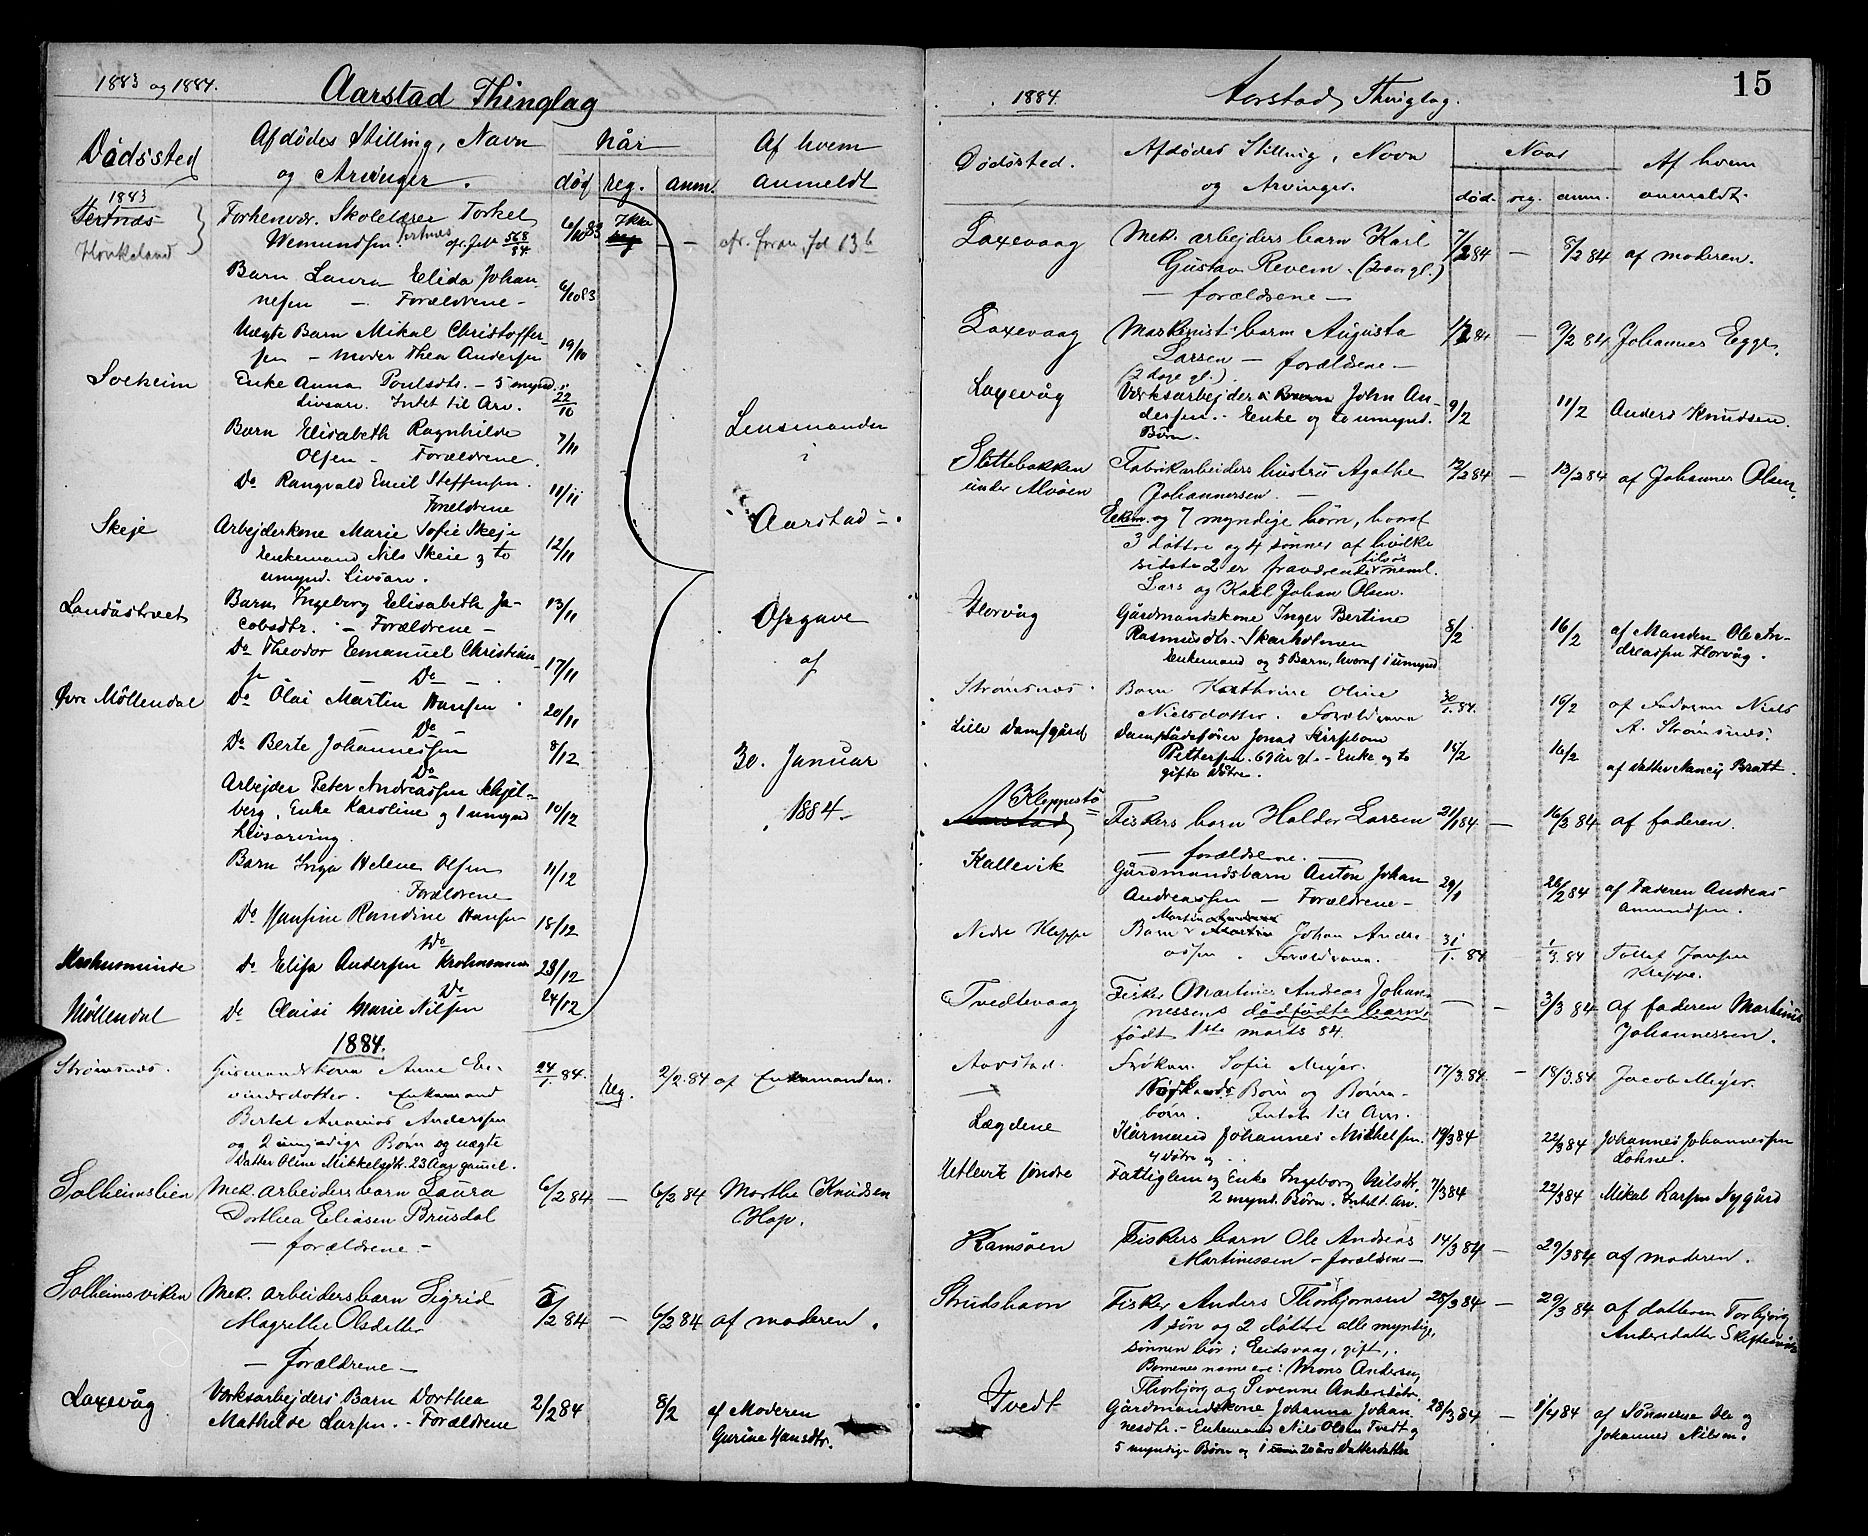 1883 og 1884.
Aarstad Thinglag
Dødssted
Afdødes Stilling, Navn
og Arvinger.
Når
død
reg.
anm.
Af hvem
anmeldt
1883
Tertnæs
Haukeland
Forhenvær. Skolelærer Torkel
Wemundsen Tertnæs cfr. Jnl 568/84.
6/10 83
Ikke
reg
— —
cfr. foran fol 13 b
Barn Laura Elida Johan-
nesen — Forældrene -
6/10 83
Uægte Barn Mikal Christoffer-
sen - Moder Thea Andersen
19/10
Solheim
Enke Anna Poulsdtr. - 5 mynd.
Livsarv. Intet til Arv.
22/10
Barn Elisabeth Ragnhilde
Olsen - Forældrene.
7/11
Do Rangvald Emil Steffensen.
Forældrene
10/11
Skeje
Arbejderkone Marie Sofie Skeje
Enkemand Nils Skeie og to
umynd. Livsarv.
12/11
Landåstræet
Barn Ingeborg Elisabeth Ja-
cobsdtr. - Forældrene -
13/11
Do Theodor Emanuel Christian-
sen Do
17/11
Øvre Möllendal
Do Olai Martin Hansen
Do
20/11
Do Berte Johannessen
Do
8/12
Arbejder Peter Andreassen Skjel-
berg, Enke Karoline og 1 umynd
Livsarving.
10/12
Barn Inga Helene Olsen
Forældrene
11/12
Do Hansine Randine Hansen
Do
18/12
Krohnsminde
Do Elisa Andersen Krohnsminde
Do
23/12
Möllendal
Do Claisi Marie Nilsen
24/12
Lensmanden
i
Aarstad -
Opgave
af
30. Januar
1884 -
1884.
Strømsnæs.
Husmandskone Anne Ei-
vindsdatter. Enkemand
Bertel Anveniös Anderssen
og 2 umyndige Børn og uægte
Datter Oline Mikkelsdtr. 23 Aar gamel.
24/1. 84.
reg.
2/2. 84
af Enkemanden.
Solheimslien
Mek. arbeiders barn Laura
Dorthea Eliasen Brusdal
— forældrene —
6/2 84
—
6/2 84
Marthe Knudsen
Hop.
Solheimsviken
Mek. arbeidersbarn Sigrid
Magrethe Olsdatter
— forældrene —
5/2 84
—
6/2 84
af moderen.
Laxevåg
Værksarbejders Barn Dorthea
Mathilde Larsen. - Forældrene
2/2 84
8/2
af Moderen
Gurine Hansdtr.
1884.
Aarstad Thinglag.
15
Dødssted.
Afdødes Stilling, Navn
og Arvinger.
Naar
død.
reg.
anm.
Af hvem
anmeldt.
Laxevaag
Mek. arbejders barn Karl
Gustav Revem. (2 aar gl.)
— forældrene —
7/2 84
—
8/2 84
af moderen.
Laxevaag
Maskinist's barn Augusta
Larsen — forældrene -
(2 dage gl.)
1/2 84
—
9/2 84
Johannes Egge.
Laxevåg
Værksarbejder John An-
dersen. - Enke og to umynd.
Børn.
9/2
11/2
Anders Knudsen.
Slettebakken
under Alvøen
Fabrikarbeiders hustru Agathe
Johannessen. —
Enkem. og 7 myndige børn, hvoraf
3 døttre og 4 sønner af hvilke
sidste 2 er fraværende tilsøs neml.
Lars og Karl Johan Olsen.
12/2 84
—
13/2 84
af Johannes Olsen.
Horvåg
Gårdmandskone Inger Bertine
Rasmusdtr. Skarholmen
Enkemand og 5 Barn, hvoraf 1 umynd
8/2
16/2
af Manden Ole An-
dreassen Horvåg.
Strømsnæs.
Barn Kathrine Oline
Nielsdatter. Forældrene
30/1. 84.
16/2
af Faderen Niels
A. Strømsnæs.
Lille Damsgård
Dampbådsfører Jonas
Pettersen. 69 År gl. - Enke og to
gifte Døtre.
15/2
16/2
af Datter Nancy Bratt.
Kleppestø
Aarstad
Fiskers barn Haldor Larsen
— forældrene. —
21/1 84
—
16/2 84
af faderen.
Kallevik
Gårdmandsbarn Anton Johan
Andreassen — Forældrene -
29/1
28/2 84
af Faderen Andreas
Amundsen.
Nedre Kleppe
Barn Martin Johan Andre
assen. Forældrene.
31/1. 84
1/3. 84
Tollef Jansen
Kleppe.
Tvedtevaag
Fisker Martinus Andreas Johan-
nessens dødfødte barn,
født 1ste marts 84.
—
—
3/3 84
af faderen Martinus
Johannessen.
Aarstad.
Frøken Sofie Meyer.
Børn og Børne-
børn. Intet til Arv.
17/3. 84.
—
18/3. 84
Jacob Meyer.
Lægdene
Kårmand Johannes Mikkelsen.
4 Døtre og
19/3 84
22/3 84
Johannes Johannessen
Lohne.
Fattiglem og Enke Ingeborg Nilsdtr.
2 mynd. Børn. Intet t. Arv.
7/3 84
22/3 84
Mikal Larsen Nygård
Ramsöen
Fiskers barn Ole Andreas
Martinussen - forældrene -
14/3 84
—
29/3 84
af moderen.
Strudshavn
Fisker Anders Thorbjørnsen
1 søn og 2 døttre alle myndige,
sønnen bor i Eidsvaag, gift,.
Børnenes navne ere: Mons Andersen,
Thorbjørg og Sivenne Andersdøtre.
28/3 84
—
29/3 84
af datteren Torbjörg
Andersdatter Skiftesvik
Tvedt
Gårdmandskone Johanna Johan
nesdtr. - Enkemand Nils Olsen Tvedt og
5 myndige Børn og 1 20 års Datterdatter
28/3 84
—
1/4 84
af Sönnerne Ole og
Johannes Nilsen.